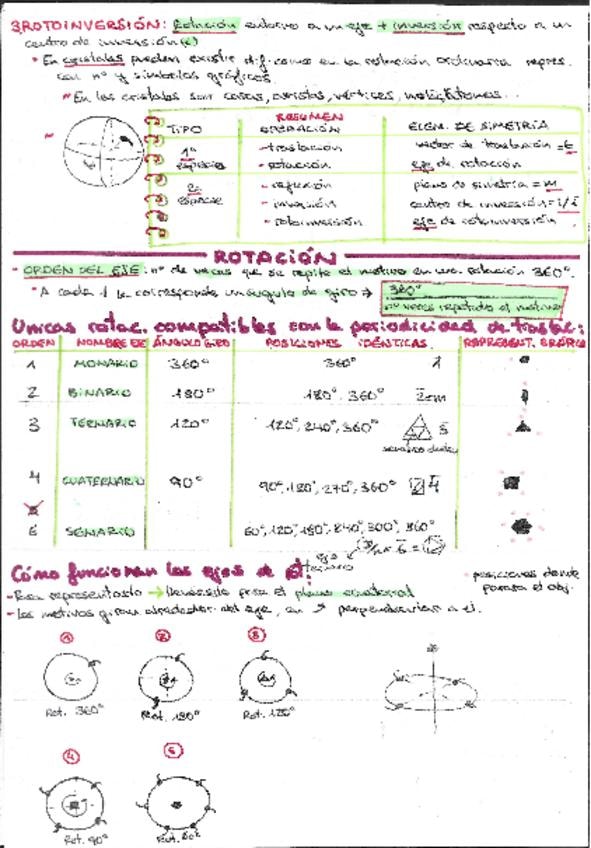 3 ROTOINVERSIÓN: Rotación entorno a un eje + inversión respecto a un
centro de inversión (c)
En cristales pueden existir dif. como en la rotación ordinaria repres.
con nº y símbolos gráficos.
En los cristales son caras, aristas, vértices, átomos...
RESUMEN
TIPO OPERACIÓN ELEM. DE SIMETRÍA
1ª especie - traslación vector de traslación = t
- rotación eje de rotación
2ª especie - reflexión plano de simetría = m
- inversión centro de inversión = i/
- rotoinversión eje de rotoinversión
ROTACIÓN
ORDEN DEL EJE: nº de veces que se repite el motivo en una rotación 360º.
A cada 1 le corresponde un ángulo de giro → 360º
nº veces repetido el motivo
Unicas rotac. compatibles con la periodicidad de traslac:
ORDEN NOMBRE EJE ÁNGULO GIRO POSICIONES IDÉNTICAS REPRESENT. GRÁFICA
1 MONARIO 360º 360º
2 BINARIO 180º 180º, 360º 2=m
3 TERNARIO 120º 120º, 240º, 360º 3
4 CUATERNARIO 90º 90º, 180º, 270º, 360º 4
5
6 SENARIO 60º, 120º, 180º, 240º, 300º, 360º
eje ternario
Cómo funcionan los ejes de
posiciones donde
pasara el obj.
- Bien representado → llevándolo para el plano ecuatorial
- Los motivos giran alrededor del eje, en perpendicular a el.
1 2 3
Rot. 360º Rot. 180º Rot. 120º
4 6
Rot. 90º Rot. 60º